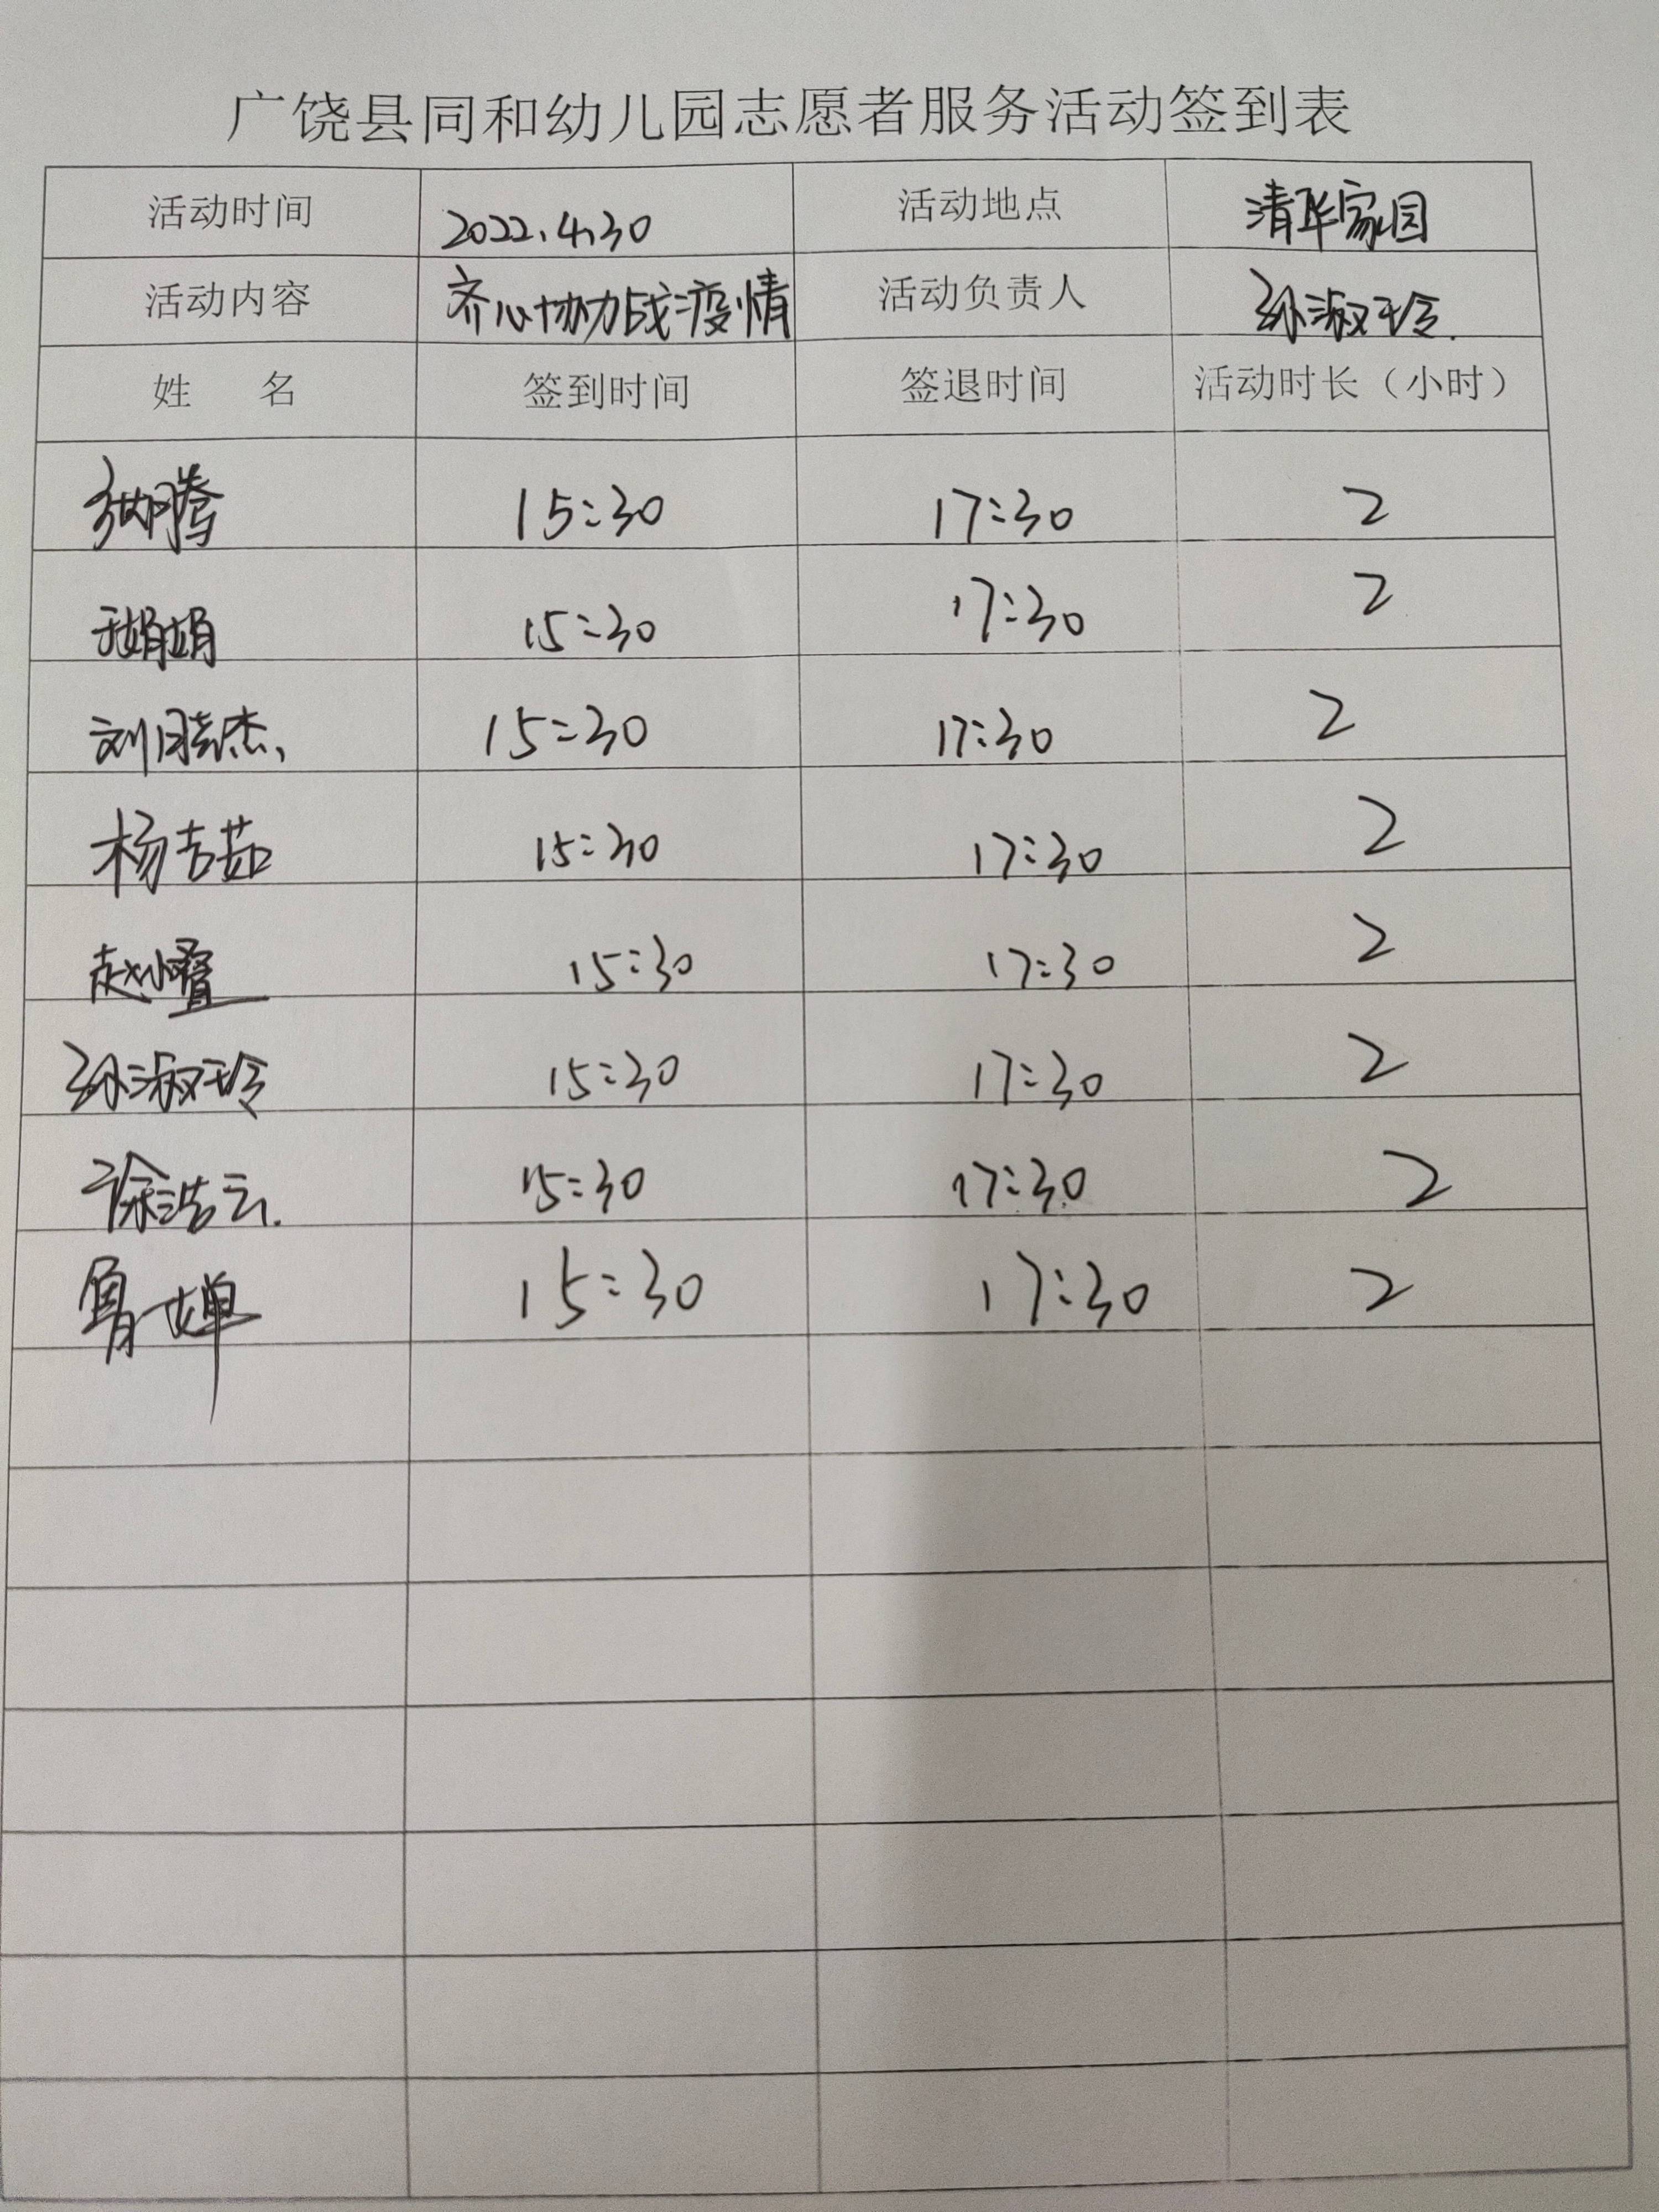 广饶县同和幼儿园志愿者服务活动签到表
活动时间 2022.4.30 活动地点 清华家园
活动内容 齐心协力战疫情 活动负责人 孙淑玲
姓 名 签到时间 签退时间 活动时长（小时）
15:30 17:30 2
于娟娟 15:30 17:30 2
刘晓杰 15:30 17:30 2
杨吉茹 15:30 17:30 2
赵小叠 15:30 17:30 2
孙淑玲 15:30 17:30 2
徐浩云 15:30 17:30 2
15:30 17:30 2